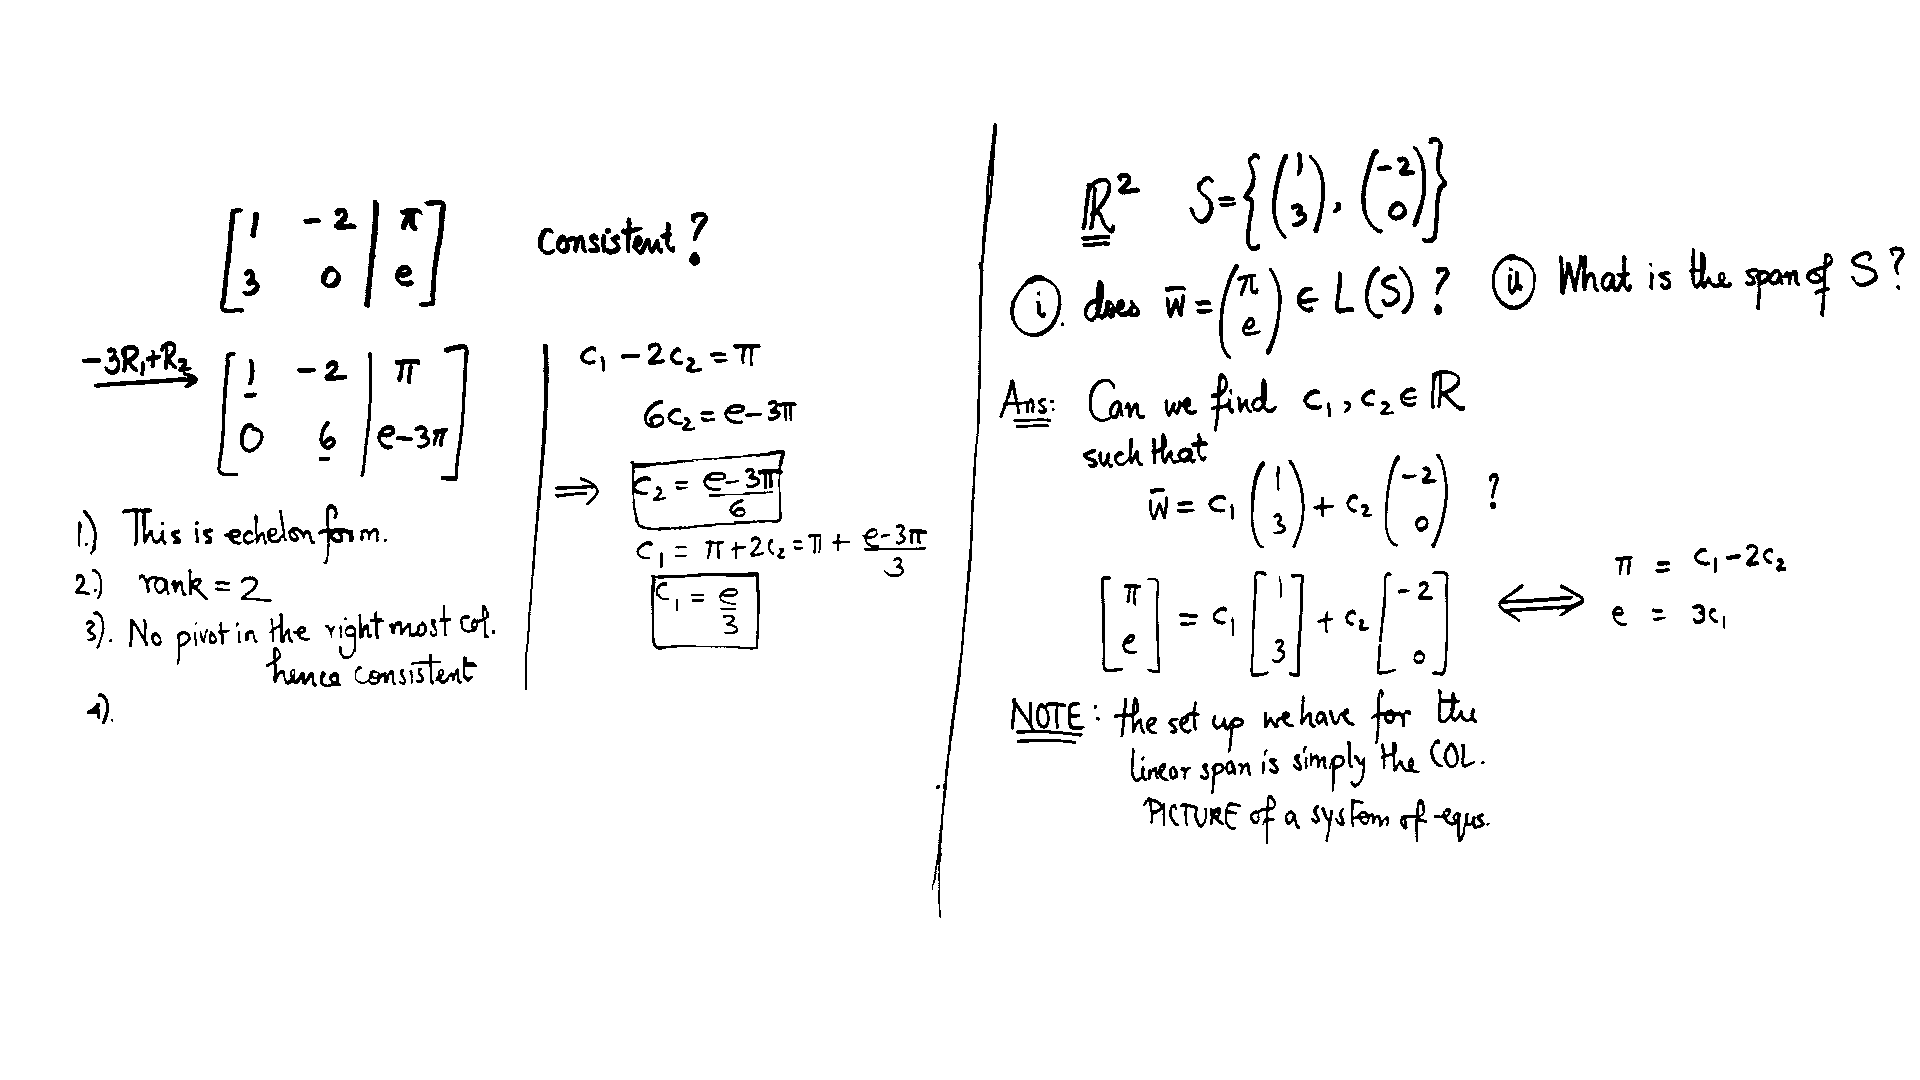 [1 -2 | π
3 0 | e] Consistent?
-3R₁+R₂ [1 -2 | π
0 6 | e-3π]
1.) This is echelon form.
2.) rank = 2
3). No pivot in the right most col.
hence consistent
4).
c₁ - 2c₂ = π
6c₂ = e-3π
⟹ c₂ = (e-3π)/6
c₁ = π+2c₂ = π + (e-3π)/3
c₁ = e/3
ℝ² S={(1 3), (-2 0)}
(i). does w̄ = (π e) ∈ L(S)? (ii) What is the span of S?
Ans: Can we find c₁, c₂ ∈ ℝ
such that
w̄ = c₁ (1 3) + c₂ (-2 0) ?
[π e] = c₁ [1 3] + c₂ [-2 0] ⟺
π = c₁-2c₂
e = 3c₁
NOTE: the set up we have for the
linear span is simply the COL.
PICTURE of a system of equs.